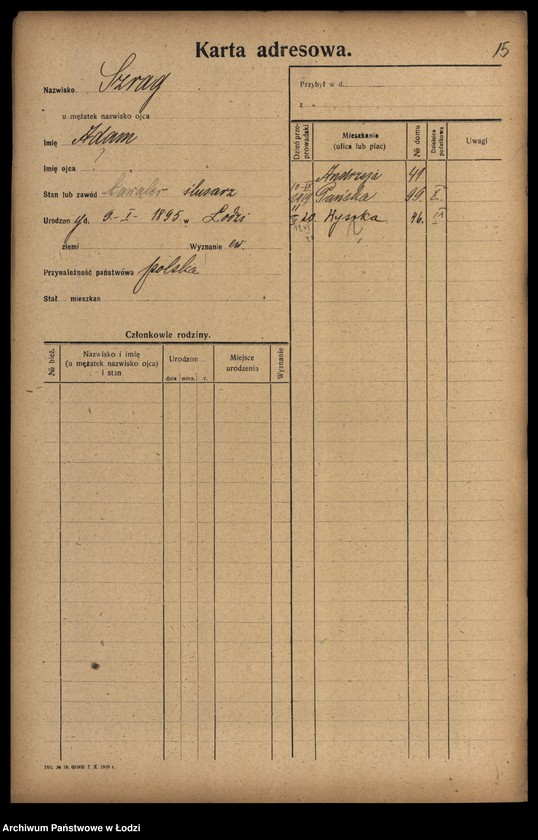 15
Karta adresowa.
Nazwisko Szrag
u mężatek nazwisko ojca
Imię Adam
Imię ojca
Stan lub zawód kawaler ślusarz
Urodzon y d. 9-I-1895 w Łodzi
ziemi Wyznanie ew.
Przynależność państwowa polska
Stał mieszkan
Przybył w d.
z
Dzień przeprowadzki Mieszkanie (ulica lub plac) № domu Dzielnica podatkowa Uwagi
Andrzeja 41
Pańska 99. X.
20. Wysoka 46.
Członkowie rodziny.
№ bież. Nazwisko i imię (u mężatek nazwisko ojca) i stan Urodzon Miejsce urodzenia Wyznanie
dnia mies. r.
7. X. 1919 r.
Archiwum Państwowe w Łodzi